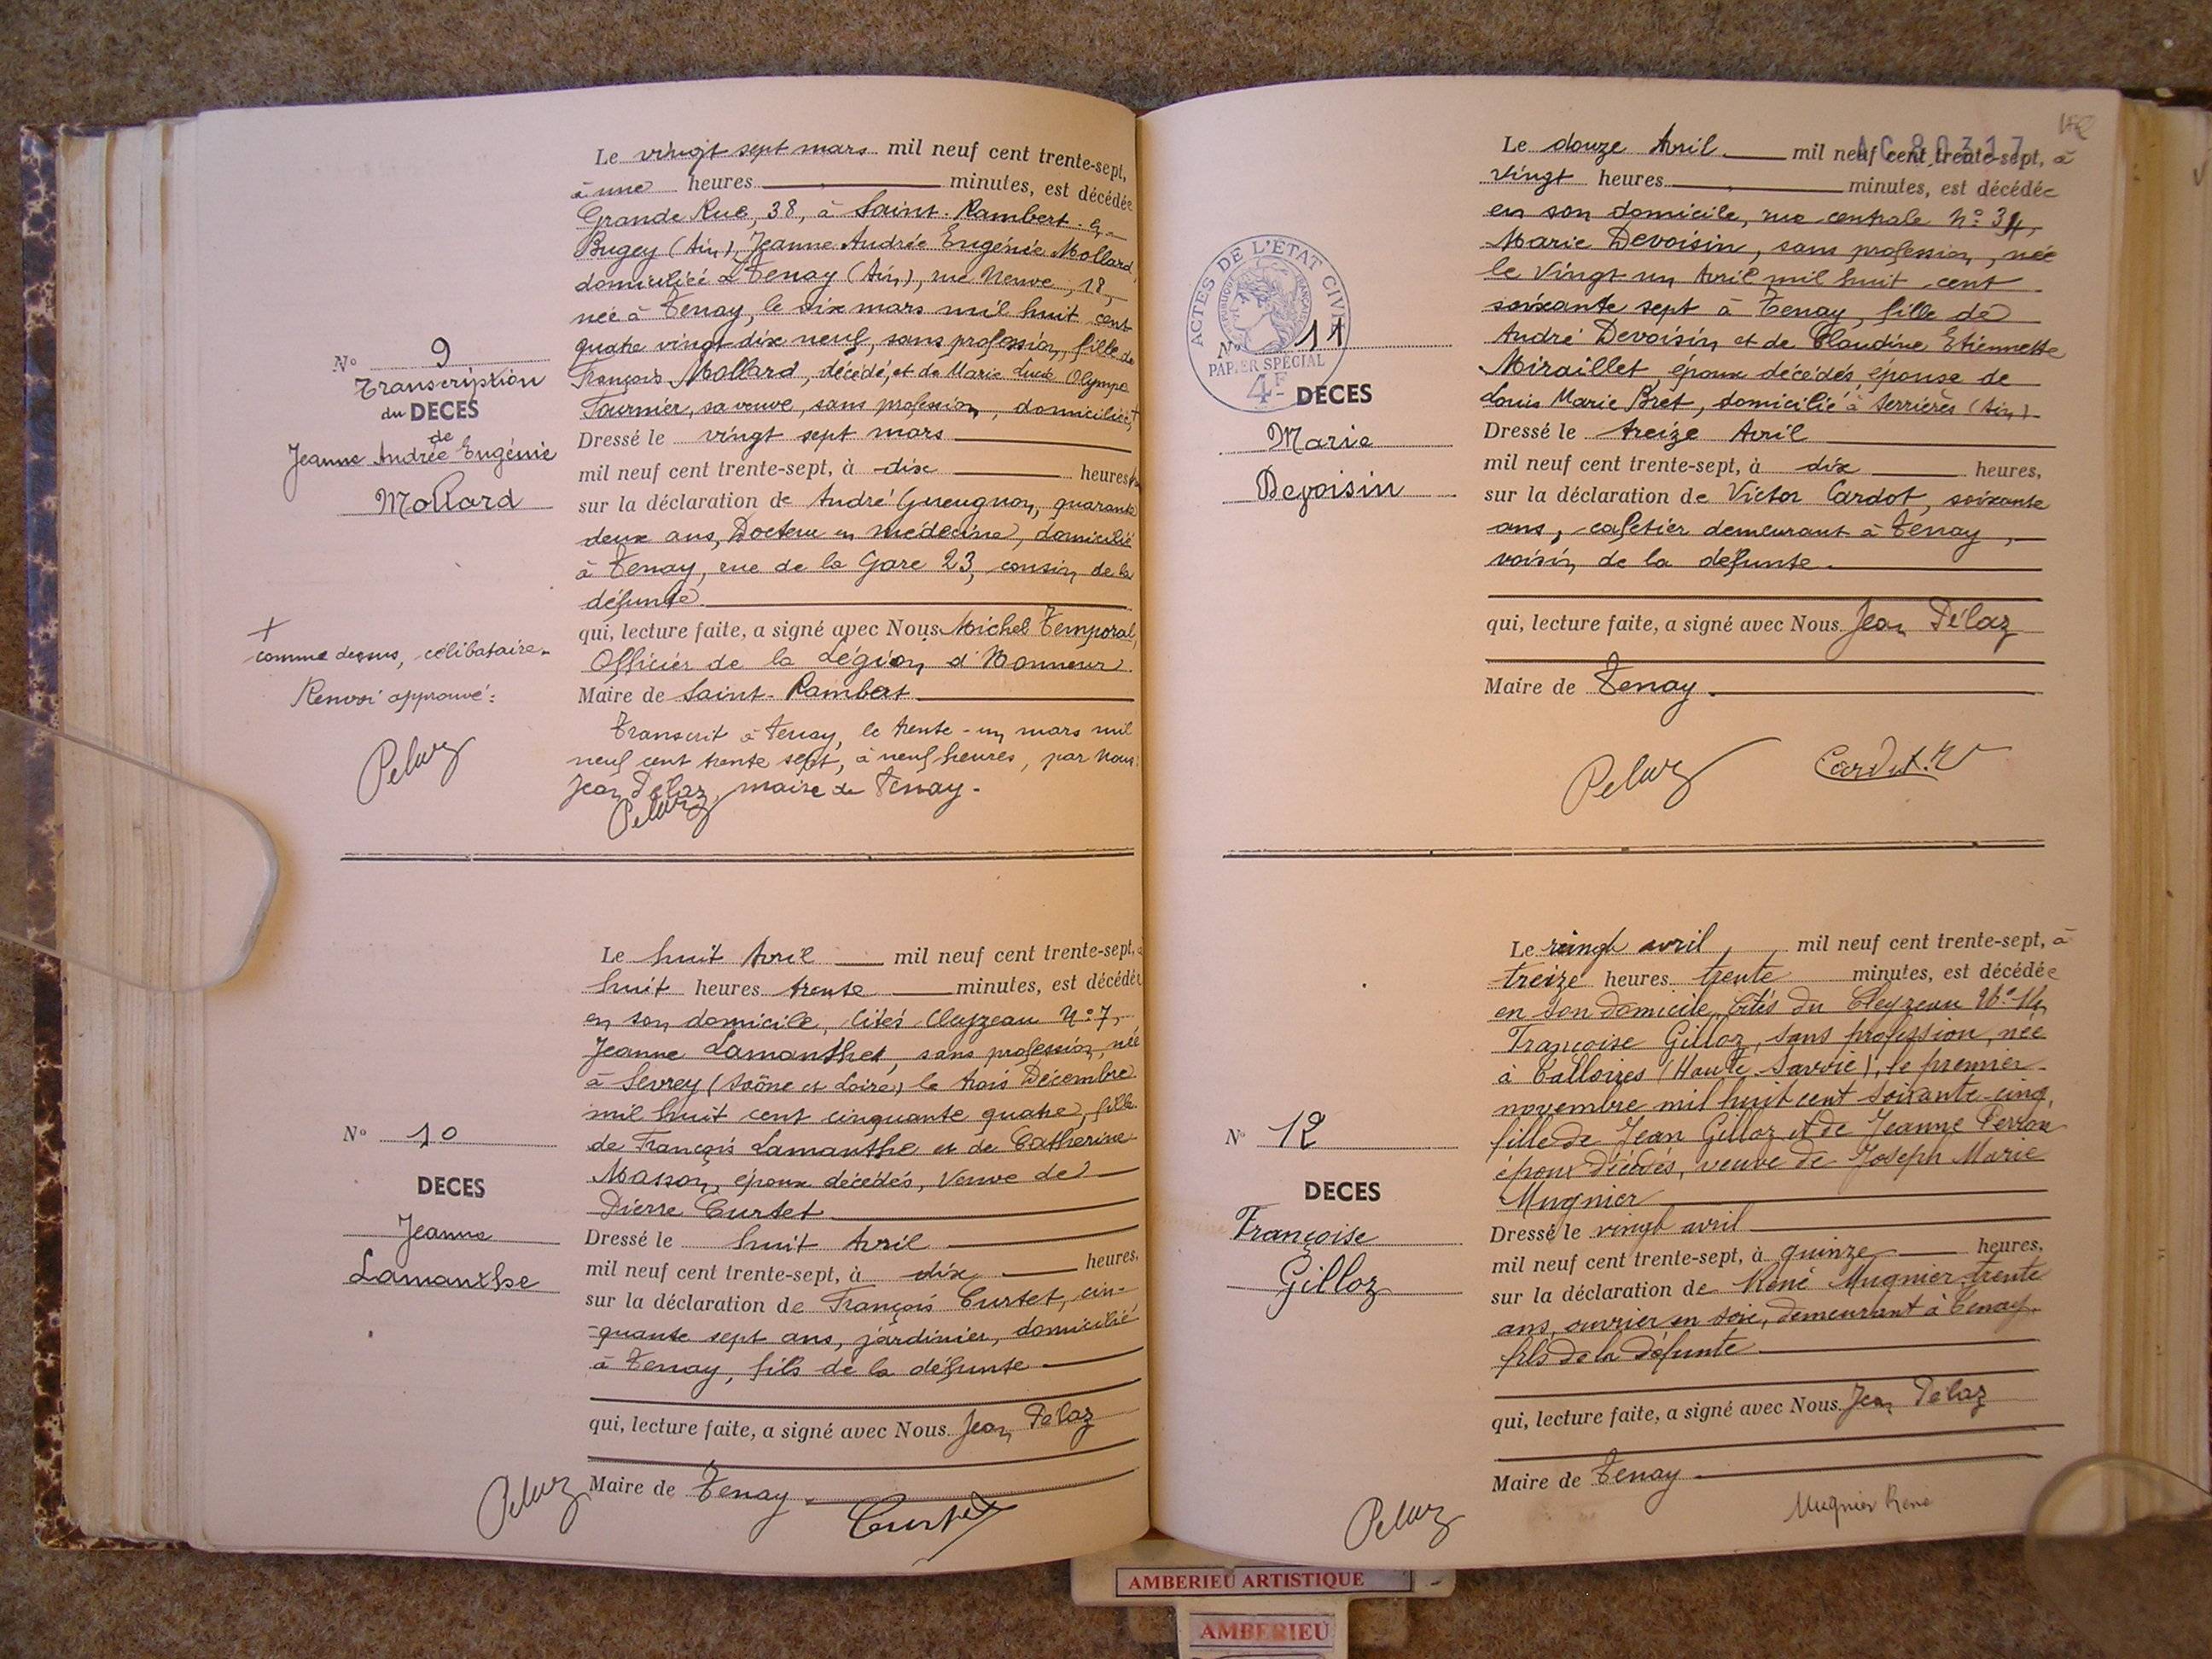 Le vingt sept mars mil neuf cent trente-sept,
à une heures minutes, est décédée
Grande Rue, 38, à Saint-Rambert-en-
Bugey (Ain), Jeanne Andrée Eugénie Mollard,
domiciliée à Tenay (Ain), rue Neuve, 18,
née à Tenay, le dix mars mil huit cent
quatre vingt dix neuf, sans profession, fille de
François Mollard, décédé, et de Marie Lucie Olympe
Fournier, sa veuve, sans profession, domiciliée +
Dressé le vingt sept mars
mil neuf cent trente-sept, à dix heures,
sur la déclaration de André Gueugnon, quarante
deux ans, Docteur en médecine, domicilié
à Tenay, rue de la Gare 23, cousin de la
défunte.
qui, lecture faite, a signé avec Nous Michel Temporal,
Officier de la Légion d'Honneur
Maire de Saint-Rambert
Transcrit à Tenay, le trente-un mars mil
neuf cent trente sept, à neuf heures, par Nous:
Jean Pélaz, maire de Tenay-
Pelaz
N° 9
Transcription
du DECES
de
Jeanne Andrée Eugénie
Mollard
+
comme dessus, célibataire.
Renvoi approuvé:
Pelaz
Le huit Avril mil neuf cent trente-sept, à
huit heures trente minutes, est décédée
en son domicile, Cités Cleyzeau N° 7,
Jeanne Lamanthe, sans profession, née
à Sevrey (Saône et Loire) le trois Décembre
mil huit cent cinquante quatre, fille
de François Lamanthe et de Catherine
Masson, époux décédés, Veuve de
Pierre Curtet
Dressé le huit Avril
mil neuf cent trente-sept, à dix heures,
sur la déclaration de François Curtet, cin-
-quante sept ans, jardinier, domicilié
à Tenay, fils de la défunte
qui, lecture faite, a signé avec Nous Jean Pélaz
Maire de Tenay.
Pelaz
Curtet
N° 10
DECES
Jeanne
Lamanthe
AC 80317
Le douze Avril mil neuf cent trente-sept, à
vingt heures minutes, est décédée
en son domicile, rue centrale N° 34,
Marie Devoisin, sans profession, née
le vingt un Avril mil huit cent
soixante sept à Tenay, fille de
André Devoisin et de Claudine Etiennette
Miraillet, époux décédés, épouse de
Louis Marie Bret, domicilié à Serrières (Ain)
Dressé le treize Avril
mil neuf cent trente-sept, à dix heures,
sur la déclaration de Victor Cardot, soixante
ans, cafetier demeurant à Tenay,
voisin de la défunte.
qui, lecture faite, a signé avec Nous Jean Pélaz
Maire de Tenay.
Pelaz
Cardot. V
ACTES DE L'ÉTAT CIVIL
RÉPUBLIQUE FRANÇAISE
N° 11
PAPIER SPÉCIAL
4F
DECES
Marie
Devoisin
Le vingt avril, mil neuf cent trente-sept, à
treize heures trente minutes, est décédée
en son domicile, Cités du Cleyzeau N° 14,
Françoise Gilloz, sans profession, née
à Talloires (Haute-Savoie), le premier
novembre mil huit cent soixante-cinq,
fille de Jean Gilloz et de Jeanne Perron
époux décédés, veuve de Joseph Marie
Mugnier
Dressé le vingt avril
mil neuf cent trente-sept, à quinze heures,
sur la déclaration de René Mugnier, trente
ans, ouvrier en soie, demeurant à Tenay,
fils de la défunte
qui, lecture faite, a signé avec Nous Jean Pélaz
Maire de Tenay
Pelaz
Mugnier René
N° 12
DECES
Françoise
Gilloz
AMBERIEU ARTISTIQUE
AMBERIEU